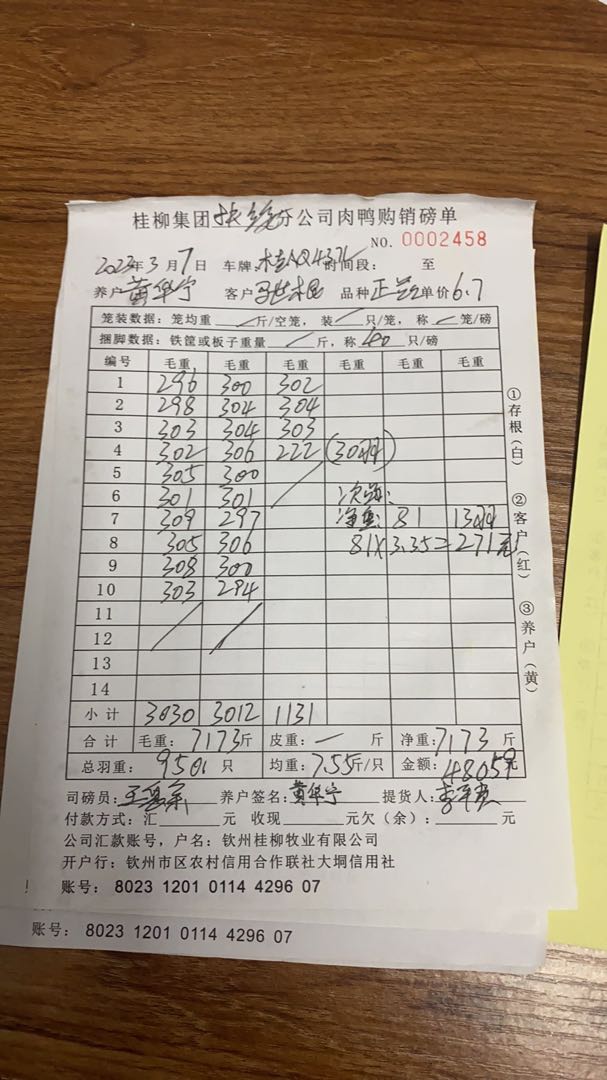 桂柳集团扶绥分公司肉鸭购销磅单
NO. 0002458
2023年3月7日 车牌: 时间段: 至
养户黄华宁 客户 品种 单价6.7
笼装数据:笼均重 斤/空笼,装 只/笼,称 笼/磅
捆脚数据:铁筐或板子重量 斤,称40只/磅
编号 毛重 毛重 毛重 毛重 毛重 毛重
1 296 300 302
2 298 304 304
3 303 304 303
4 302 306 222 (30羽)
5 305 300
6 301 301 次鸭:
7 309 297 净重: 81 13羽
8 305 306 81×3.35=271元
9 308 300
10 303 294
11
12
13
14
小计 3030 3012 1131
合计 毛重:7173斤 皮重:— 斤 净重:7173斤
总羽重: 950 只 均重:7.55斤/只 金额:48059元
司磅员: 养户签名:黄华宁 提货人:
付款方式:汇 元 收现 元欠(余): 元
公司汇款账号,户名:钦州桂柳牧业有限公司
开户行:钦州市区农村信用合作联社大垌信用社
账号:8023 1201 0114 4296 07
账号:8023 1201 0114 4296 07
①存根(白)
②客户(红)
③养户(黄)